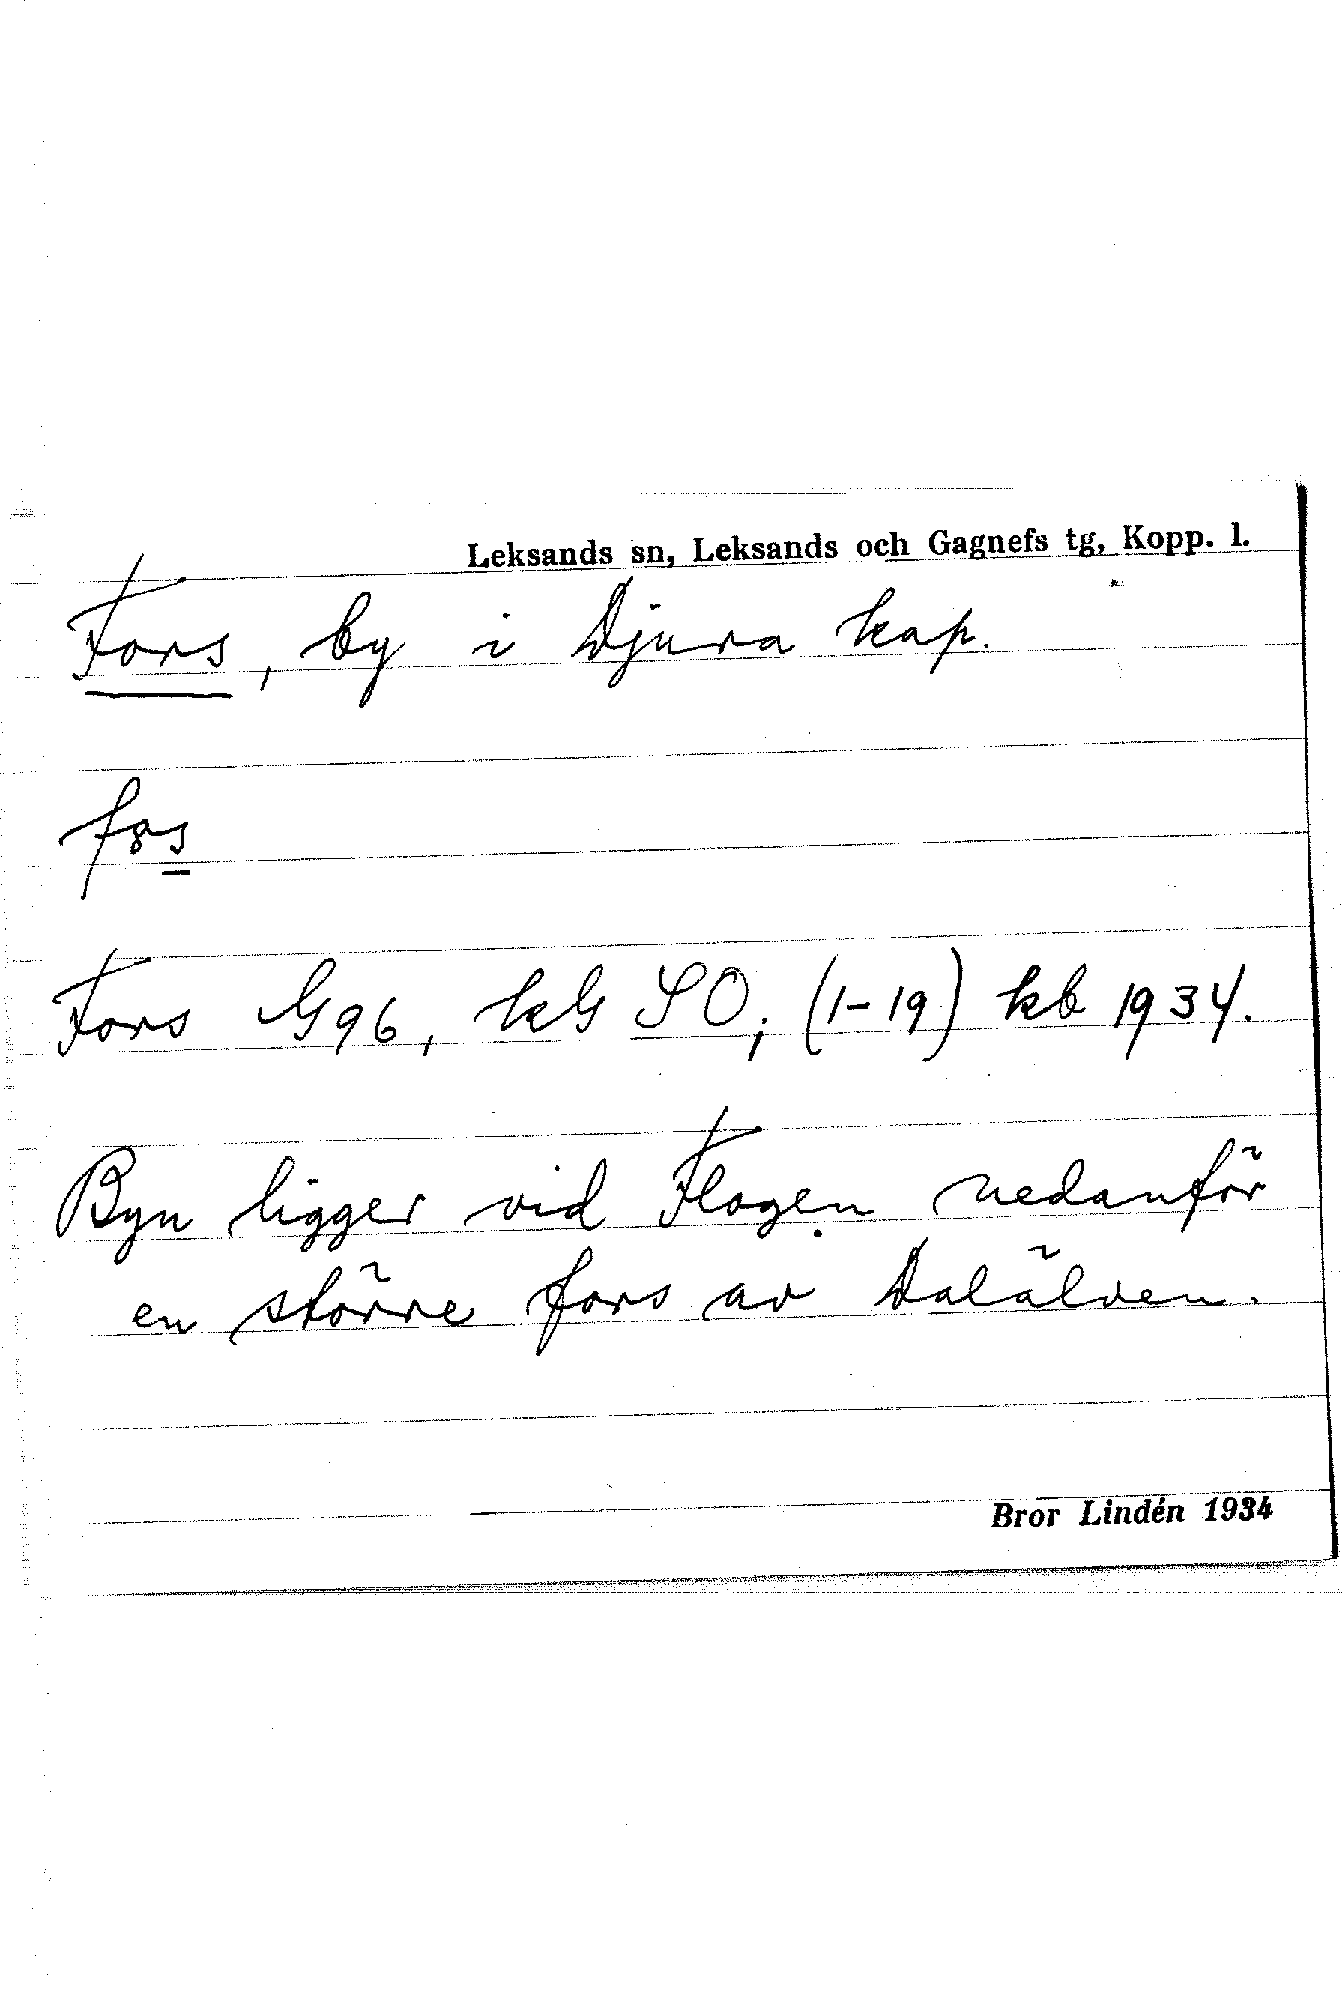 Leksands sn, Leksands och Gagnefs tg, Kopp. l.
Fors, by i Djura kap.
Fors G96, kG SO; (1-19) kb 1934.
Byn ligger vid Flogen nedanför
en större fors av Dalälven.
Bror Lindén 1934